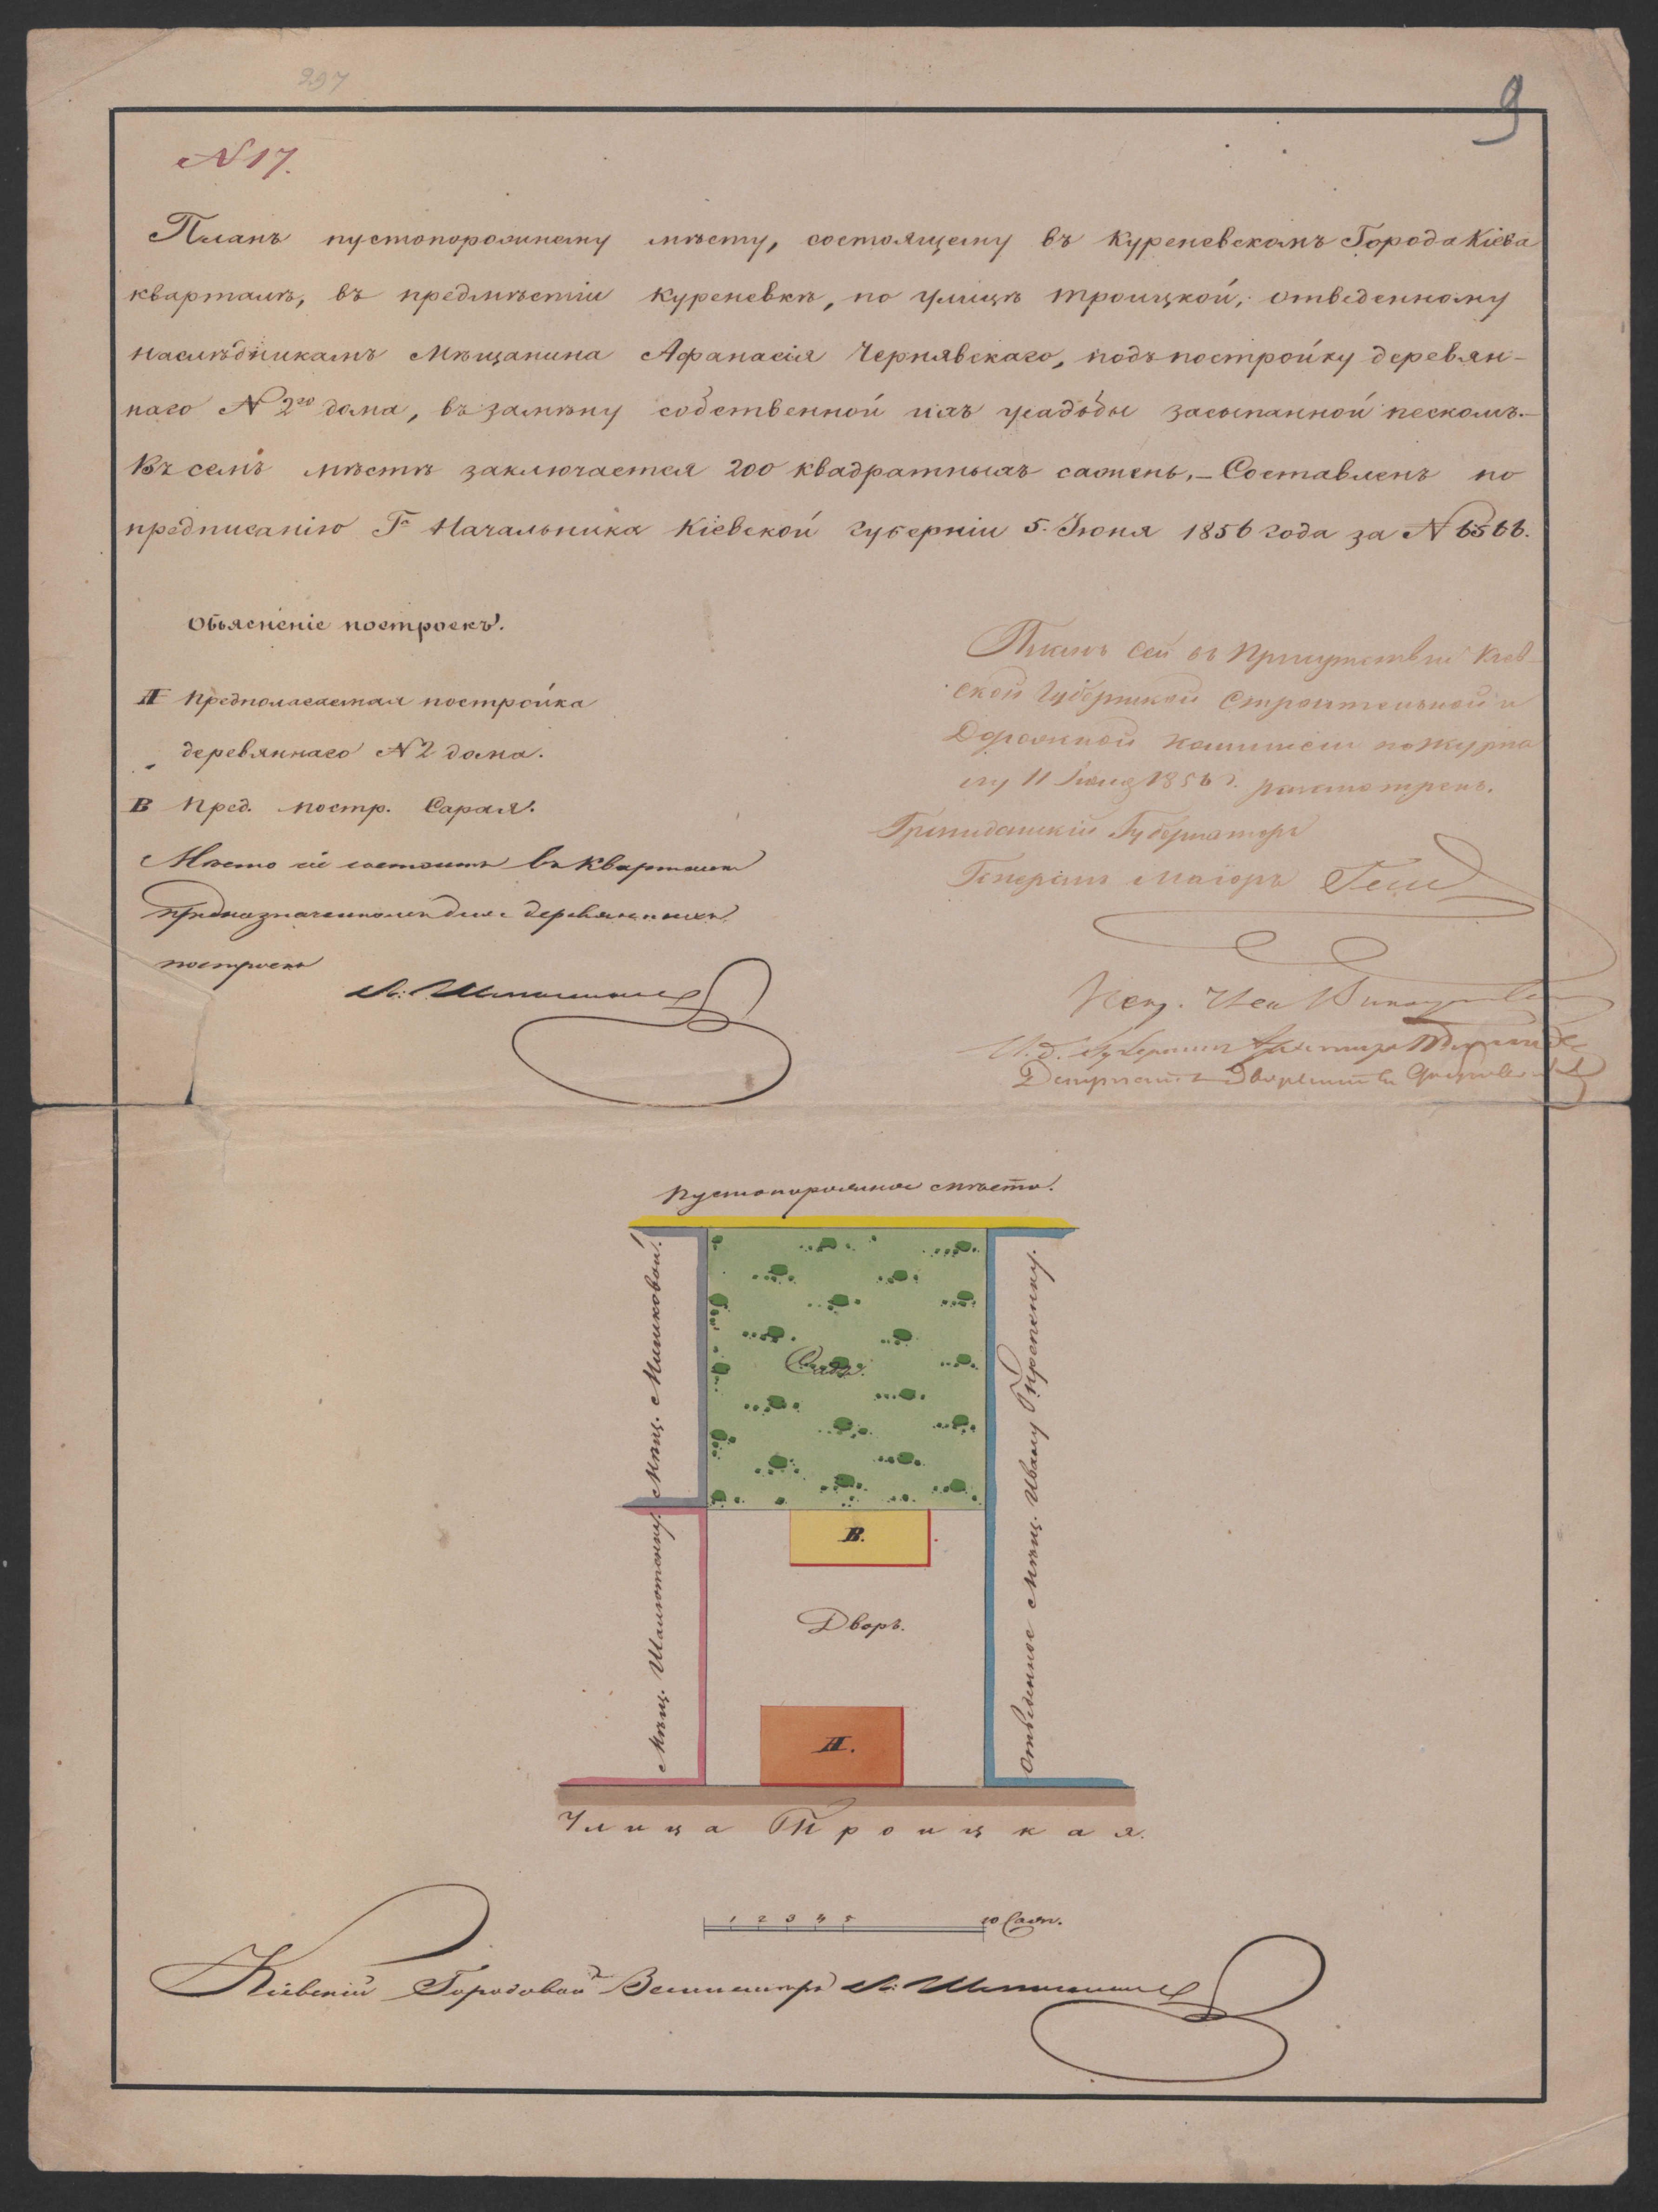 297
9
N 17.
Планъ пустопорожнему мѣсту, состоящему въ Куреневскомъ Города Кіева
кварталѣ, въ предмѣстіи Куреневкѣ, по улицѣ Троицкой, отведенному
наслѣдникамъ Мѣщанина Афанасія Чернявскаго, подъ постройку деревян-
наго N 2го дома, въ замѣну собственной ихъ усадьбы засыпанной пескомъ.–
Въ семъ мѣстѣ заключается 200 квадратныхъ сажень.– Составленъ по
предписанію Гна Начальника Кіевской Губерніи 5. Іюня 1856 года за N 6566.
Объясненіе построекъ.
А предполагаемая постройка
деревяннаго N 2 дома.
В пред. постр. Сарая.
Мѣсто сіе состоитъ въ кварталѣ
предназначенномъ для деревянныхъ
построекъ
Планъ сей въ Присутствіи Кіев-
ской Губернской Строительной и
Дорожной Коммисіи по журна
лу 11 1856 г. разсмотренъ.
Гражданскій Губернаторъ
Генералъ Маіоръ
И. д. Губернск
Депутатъ Дворянства
Пустопорожнее мѣсто.
Мѣщ. Мишковой.
Садъ.
Отведенное Мѣщ. Ивану
Мѣщ.
В.
Дворъ.
А.
Улица Троицкая.
1 2 3 4 5 10 Саж.
Кіевскій Городовой